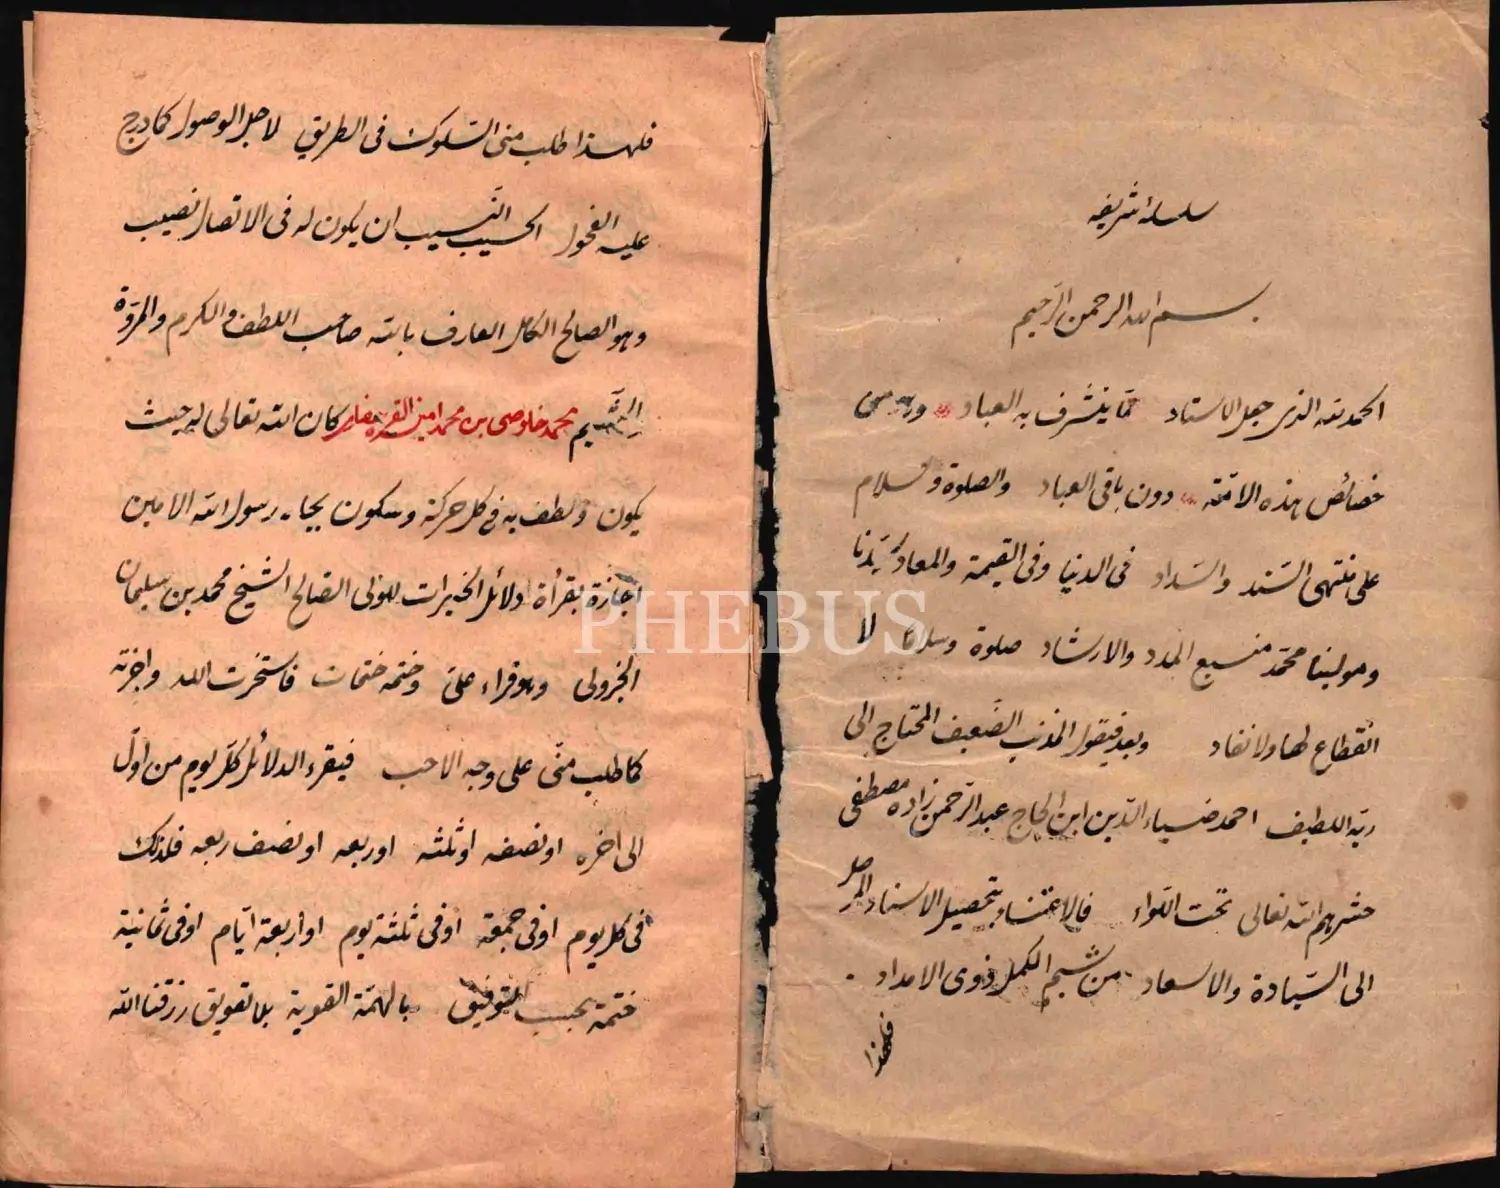 سلسلۀ شريفه
بسم الله الرحمن الرّحيم
الحمد لله الذى جعل الاسناد ممّا يتشرف به العباد ومن
خصائص هذه الامّة دون باقى العباد والصلوة والسلام
على منتهى السّند والسّداد فى الدنيا وفى القيمة والمعاد سيّدنا
ومولينا محمّد منبع المدد والارشاد صلوة وسلاما لا
انقطاع لها ولا نفاد وبعد فيقول المذنب الضّعيف المحتاج الى
ربّه اللطيف احمد ضياء الدّين ابن الحاج عبد الرّحمن زاده مصطفى
حشرهم الله تعالى تحت اللّواء فالاعتناء بتحصيل الاسناد الموصل
الى السّيادة والاسعاد من شيم الكمل ذوى الامداد
فلهذا
فلهذا طلب منى السّلوك فى الطريق لاجل الوصول كما درج
عليه الفحول الحسيب النّسيب ان يكون له فى الاتصال نصيب
وهو الصالح الكامل العارف بالله صاحب اللطف والكرم والمروّة
محمد خلوصى بن محمد امين كان الله تعالى له حيث
يكون ولطف به فى كل حركة وسكون بجاه رسول الله الامين
اجازة بقرأة دلائل الخيرات للولى الصالح الشيخ محمد بن سليمان
الجزولى وهو قراء علىّ وختمه ختمات فاستخرت الله واجزته
كما طلب منّى على وجه الاحب فيقرء الدلائل كلّ يوم من اوّل
الى اخره او نصفه او ثلثه او ربعه او نصف ربعه فلذلك
فى كل يوم او فى جمعة او فى ثلثه يوم او اربعة ايّام او فى ثمانية
ختمة بحسب التوفيق بالهمّة القوية بلا تعويق رزقنا الله
PHEBUS